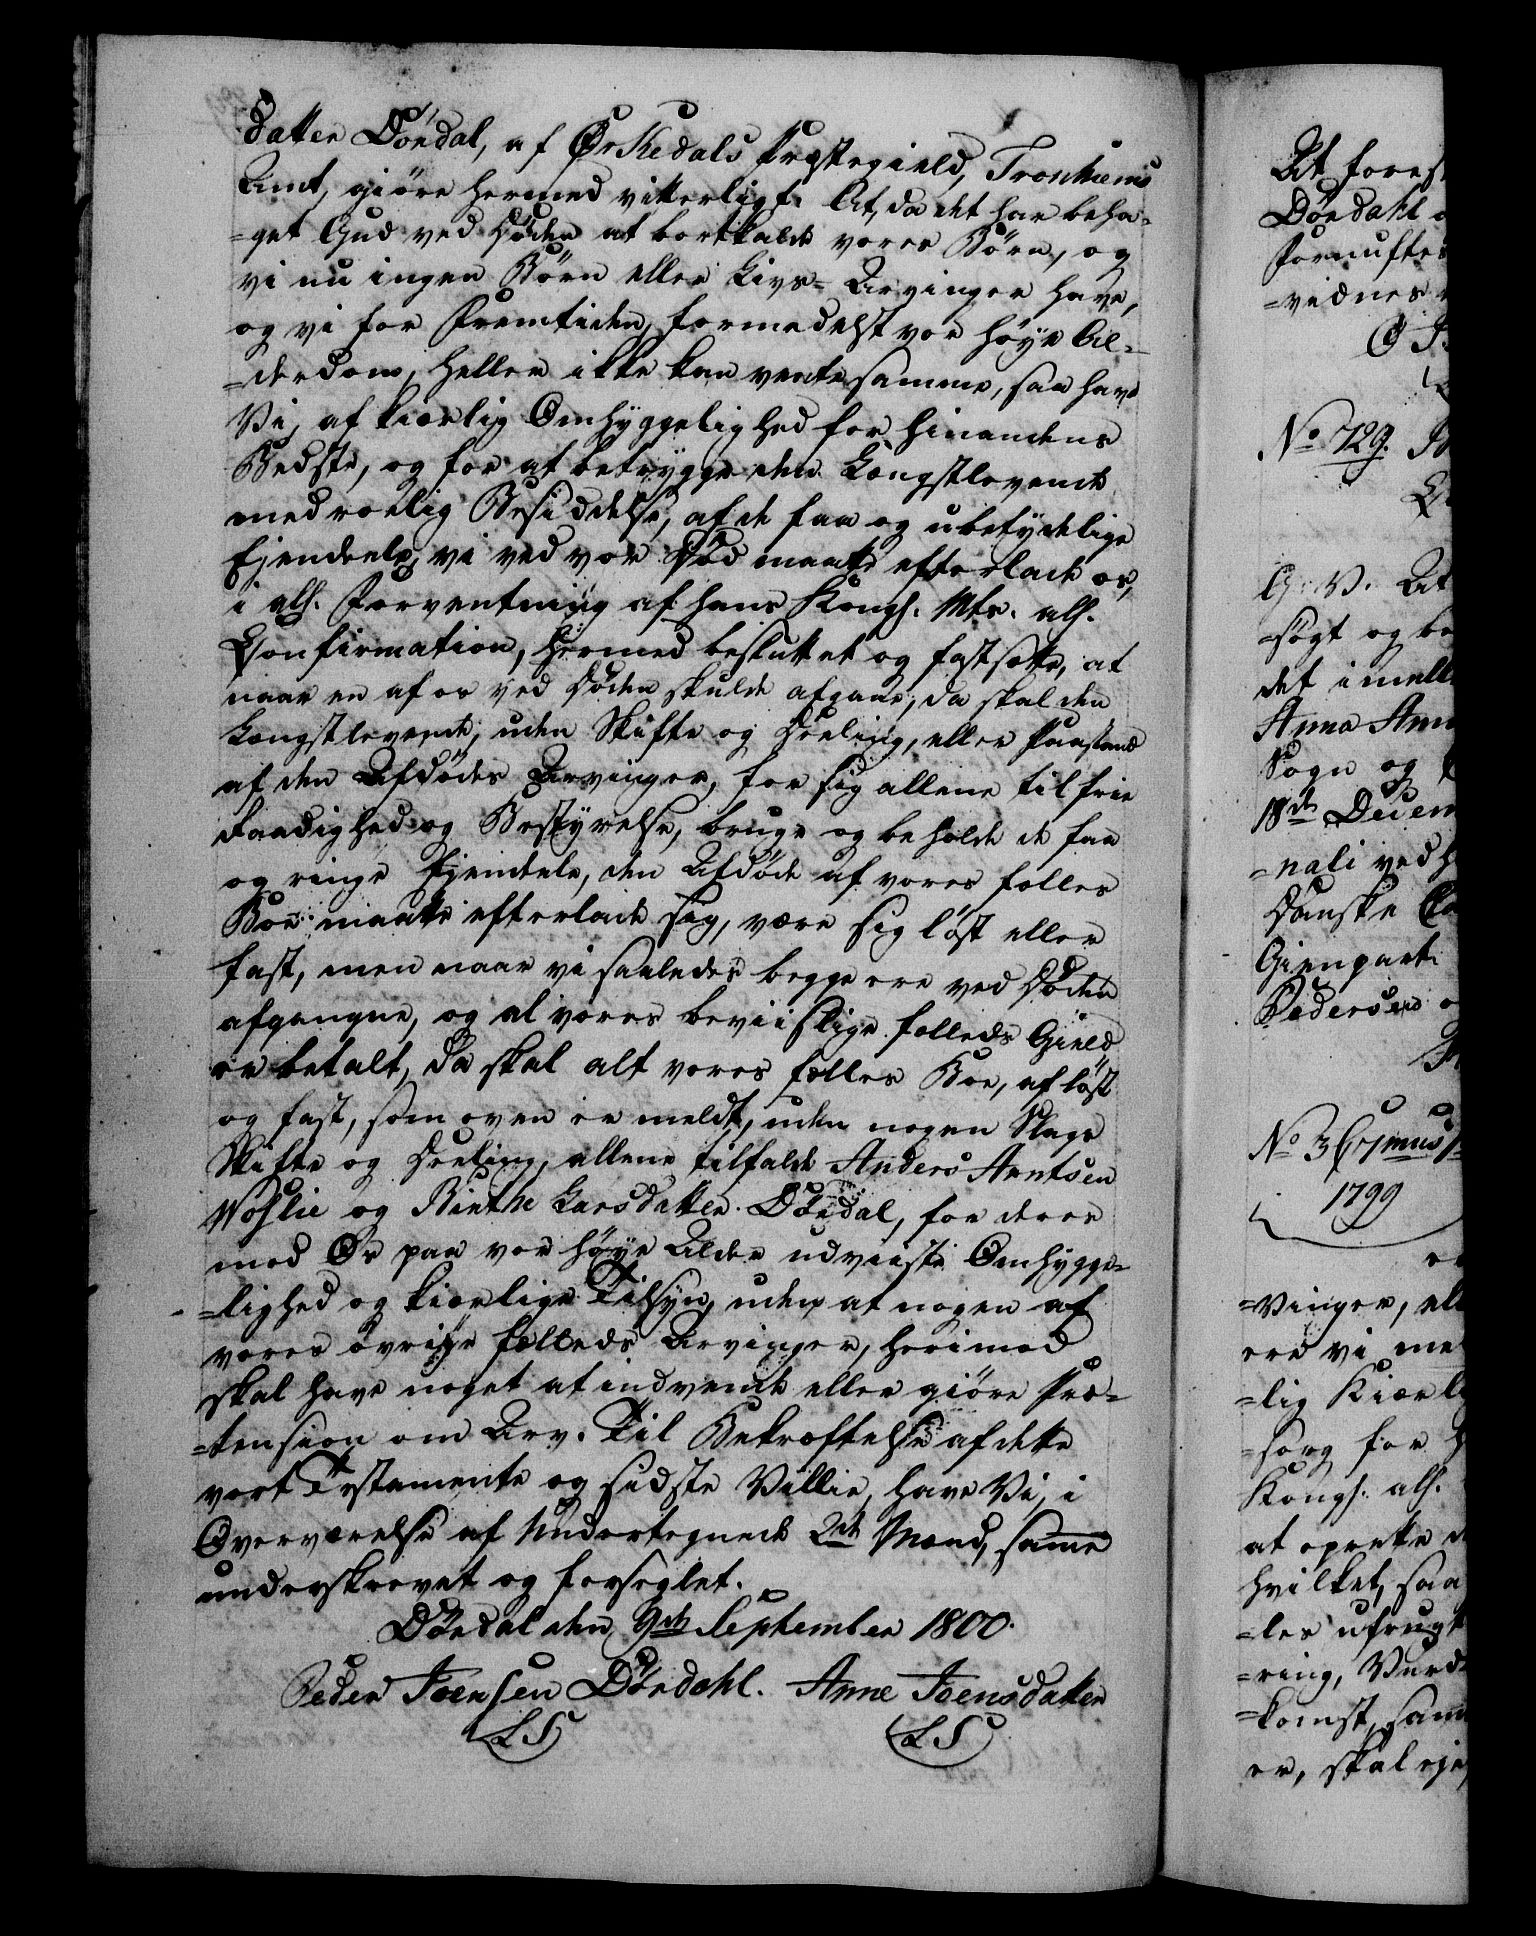 datter Dördal, af Ørkedals Præstegield, Tronhiems
Amt, giöre hermed vitterligt: At, da det har beha-
=get Gud ved Döden at bortkalde vores Börn, og
vi nu ingen Börn eller Livs-Arvinger have,
og vi for Fremtiden, formedelst vor höye Al-
=derdom, heller ikke kan vente samme, saa have
Vi, af kierlig Omhyggelighed for hinandens
Bedste, og for at betrygge den Længstlevende
med roelig Besiddelse, af de faa og ubetydelige
Ejendeele, vi ved vor Död maatte efterlade os,
i alh. Forventning af Hans Kongl. Mts. alh.
Confirmation, hermed besluttet og fastsatte, at
naar en af os ved Döden skulde afgaae, da skal den
Længstlevende, uden Skifte og Deeling, eller Paastand
af den Afdödes Arvinger, for sig allene til frie
Raadighed og Bestyrelse, bruge og beholde de faa
og ringe Ejendele, den Afdöde af vores fælles
Boe maatte efterlade sig, være sig löst eller
fast, men naar vi saaledes begge ere ved Döden
afgangne, og al vores beviislige fælleds Gield
er betalt, da skal alt vores fælles Boe, af löst
og fast, som oven er meldt, uden nogen Slags
Skifte og Deeling, allene tilfalde Anders Arntsen
Woslie og Birthe Larsdatter Dördal, for deres
mod Os paa vor höye Alder udviiste Omhygge-
=lighed og kierlige Tilsyn, uden at nogen af
vores övrige fælleds Arvinger, herimod
skal have noget at indvende eller giöre Præ-
=tension om Arv. Til Bekræftelse af dette
vort Testamente og sidste Villie, have Vi, i
Overværelse af Undertegnede 2de Mænd, samme
underskrevet og forseglet.
Dördal den 9de September 1800.
Peder Joensen Dördahl. Anne Joensdatter
LS LS
At fores
Dördahl
Fornuftes
=vidnes
No 729.
G. V. At
=sögt og be
det imell
Anna Ann
Sogn og
18de Decem
=nali ved H
Danske Ca
Gienpart
Pedersen
No 3
1799
=vinger, ell
ere vi me
=lig Kierl
=sorg for
Kongl. alh.
at oprette
hvilket, saa
=les ufrugt
=ring, Vurd
=komst, sam
er, skal eje